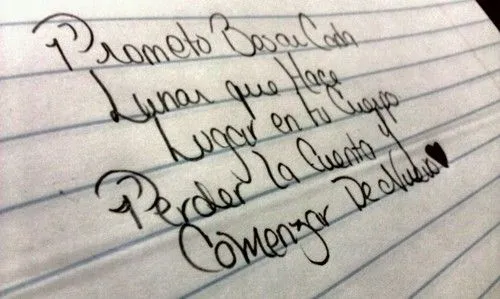 Prometo Besar Cada
Lunar que Hace
Lugar en tu Cuerpo
Perder La Cuenta y
Comenzar De Nuevo♥